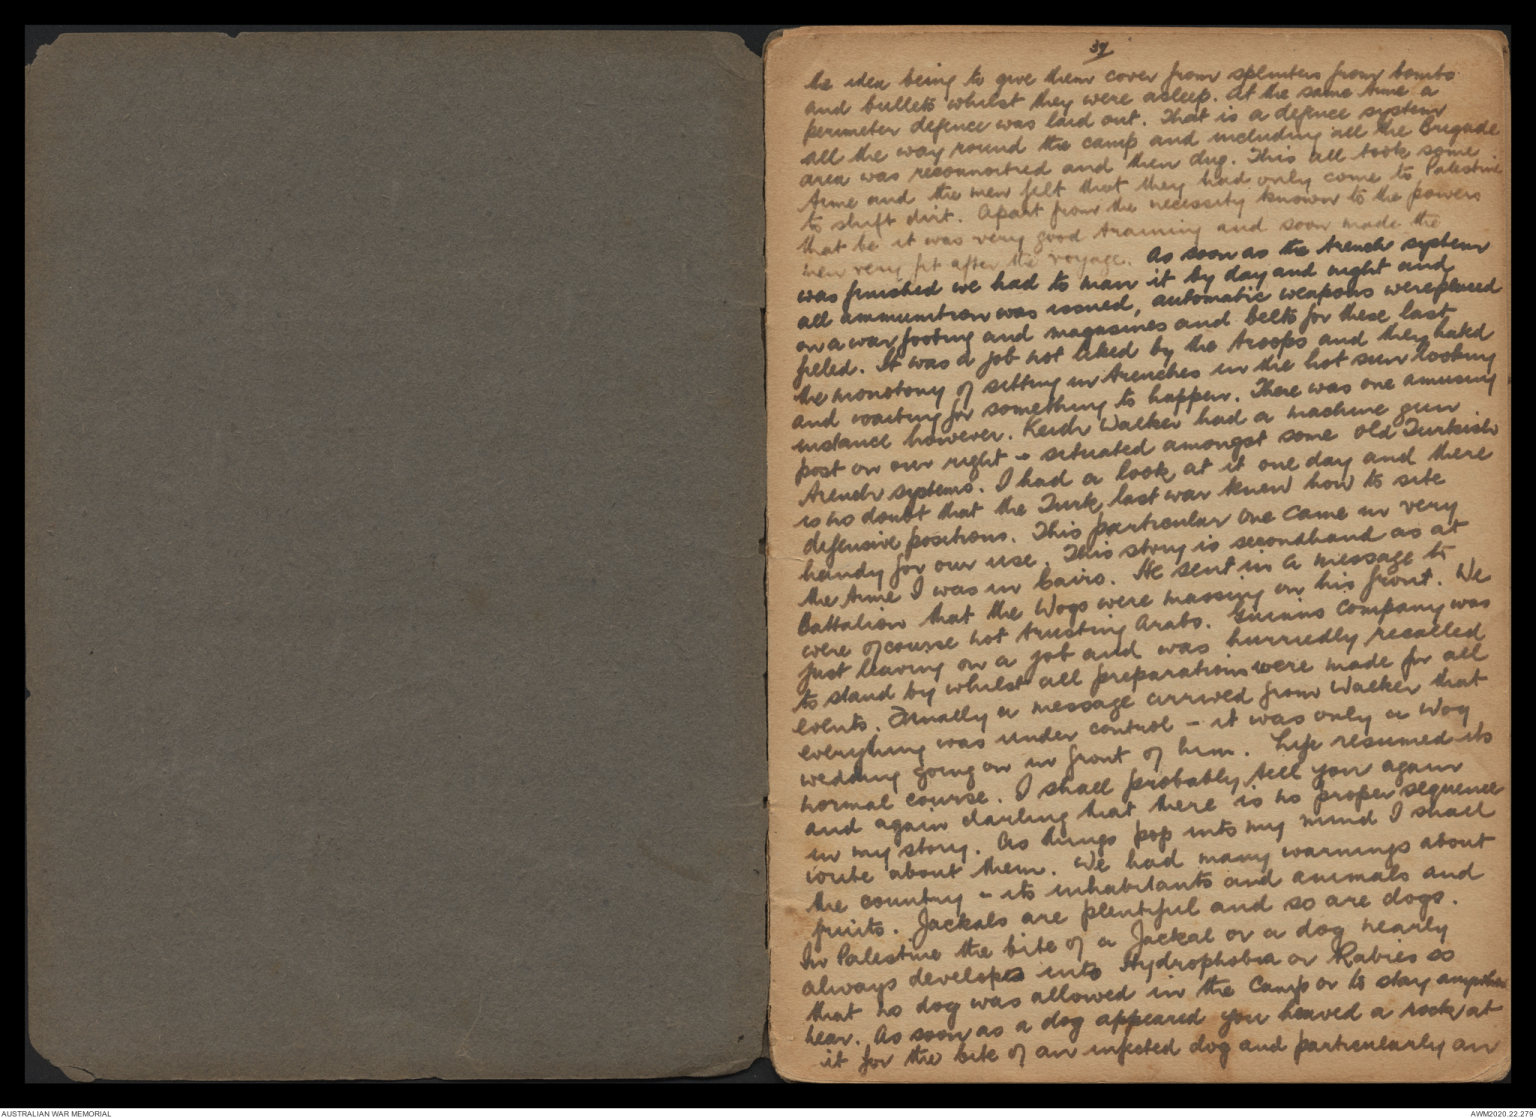 39
the idea being to give them cover from splinters from bombs
and bullets whilst they were asleep. At the same time a
perimeter defence was laid out. That is a defence system
all the way round the camp and including all the Brigade
area was reconnoitred and then dug. This all took some
time and the men felt that they had only come to Palestine
to shift dirt. Apart from the necessity known to the powers
that be it was very good training and soon made the
men very fit after the voyage. As soon as the trench system
was finished we had to man it by day and night and
all ammunition was issued, automatic weapons were placed
on a war footing and magasines and belts for these last
filled. It was a job not liked by the troops and they hated
the monotony of sitting in trenches in the hot sun looking
and waiting for something to happen. There was one amusing
instance however. Keith Walker had a machine gun
post on our right - situated amongst some old Turkish
trench systems. I had a look at it one day and there
is no doubt that the Turk last war knew how to site
defensive positions. This particular one came in very
handy for our use. This story is secondhand as at
the time I was in Cairo. He sent in a message to
Battalion that the Wogs were massing on his front. We
were of course not trusting Arabs. Guinns Company was
just leaving on a job and was hurriedly recalled
to stand by whilst all preparations were made for all
events. Finally a message arrived from Walker that
everything was under control - it was only a Wog
wedding going on in front of him. Life resumed its
normal course. I shall probably tell you again
and again darling that there is no proper sequence
in my story. As things pop into my mind I shall
write about them. We had many warnings about
the country - its inhabitants and animals and
fruits. Jackals are plentiful and so are dogs.
In Palestine the bite of a Jackal or a dog nearly
always developes into Hydrophobia or Rabies so
that no dog was allowed in the Camp or to stay anywhere
near. As soon as a dog appeared you heaved a rock at
it for the bite of an infected dog and particularly an
AUSTRALIAN WAR MEMORIAL
AWM2020.22.279